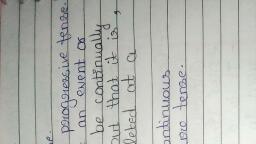 e.
progressive tense.
an event or
be continually
out that it is,
leted at a
ontinuous
ure tense.